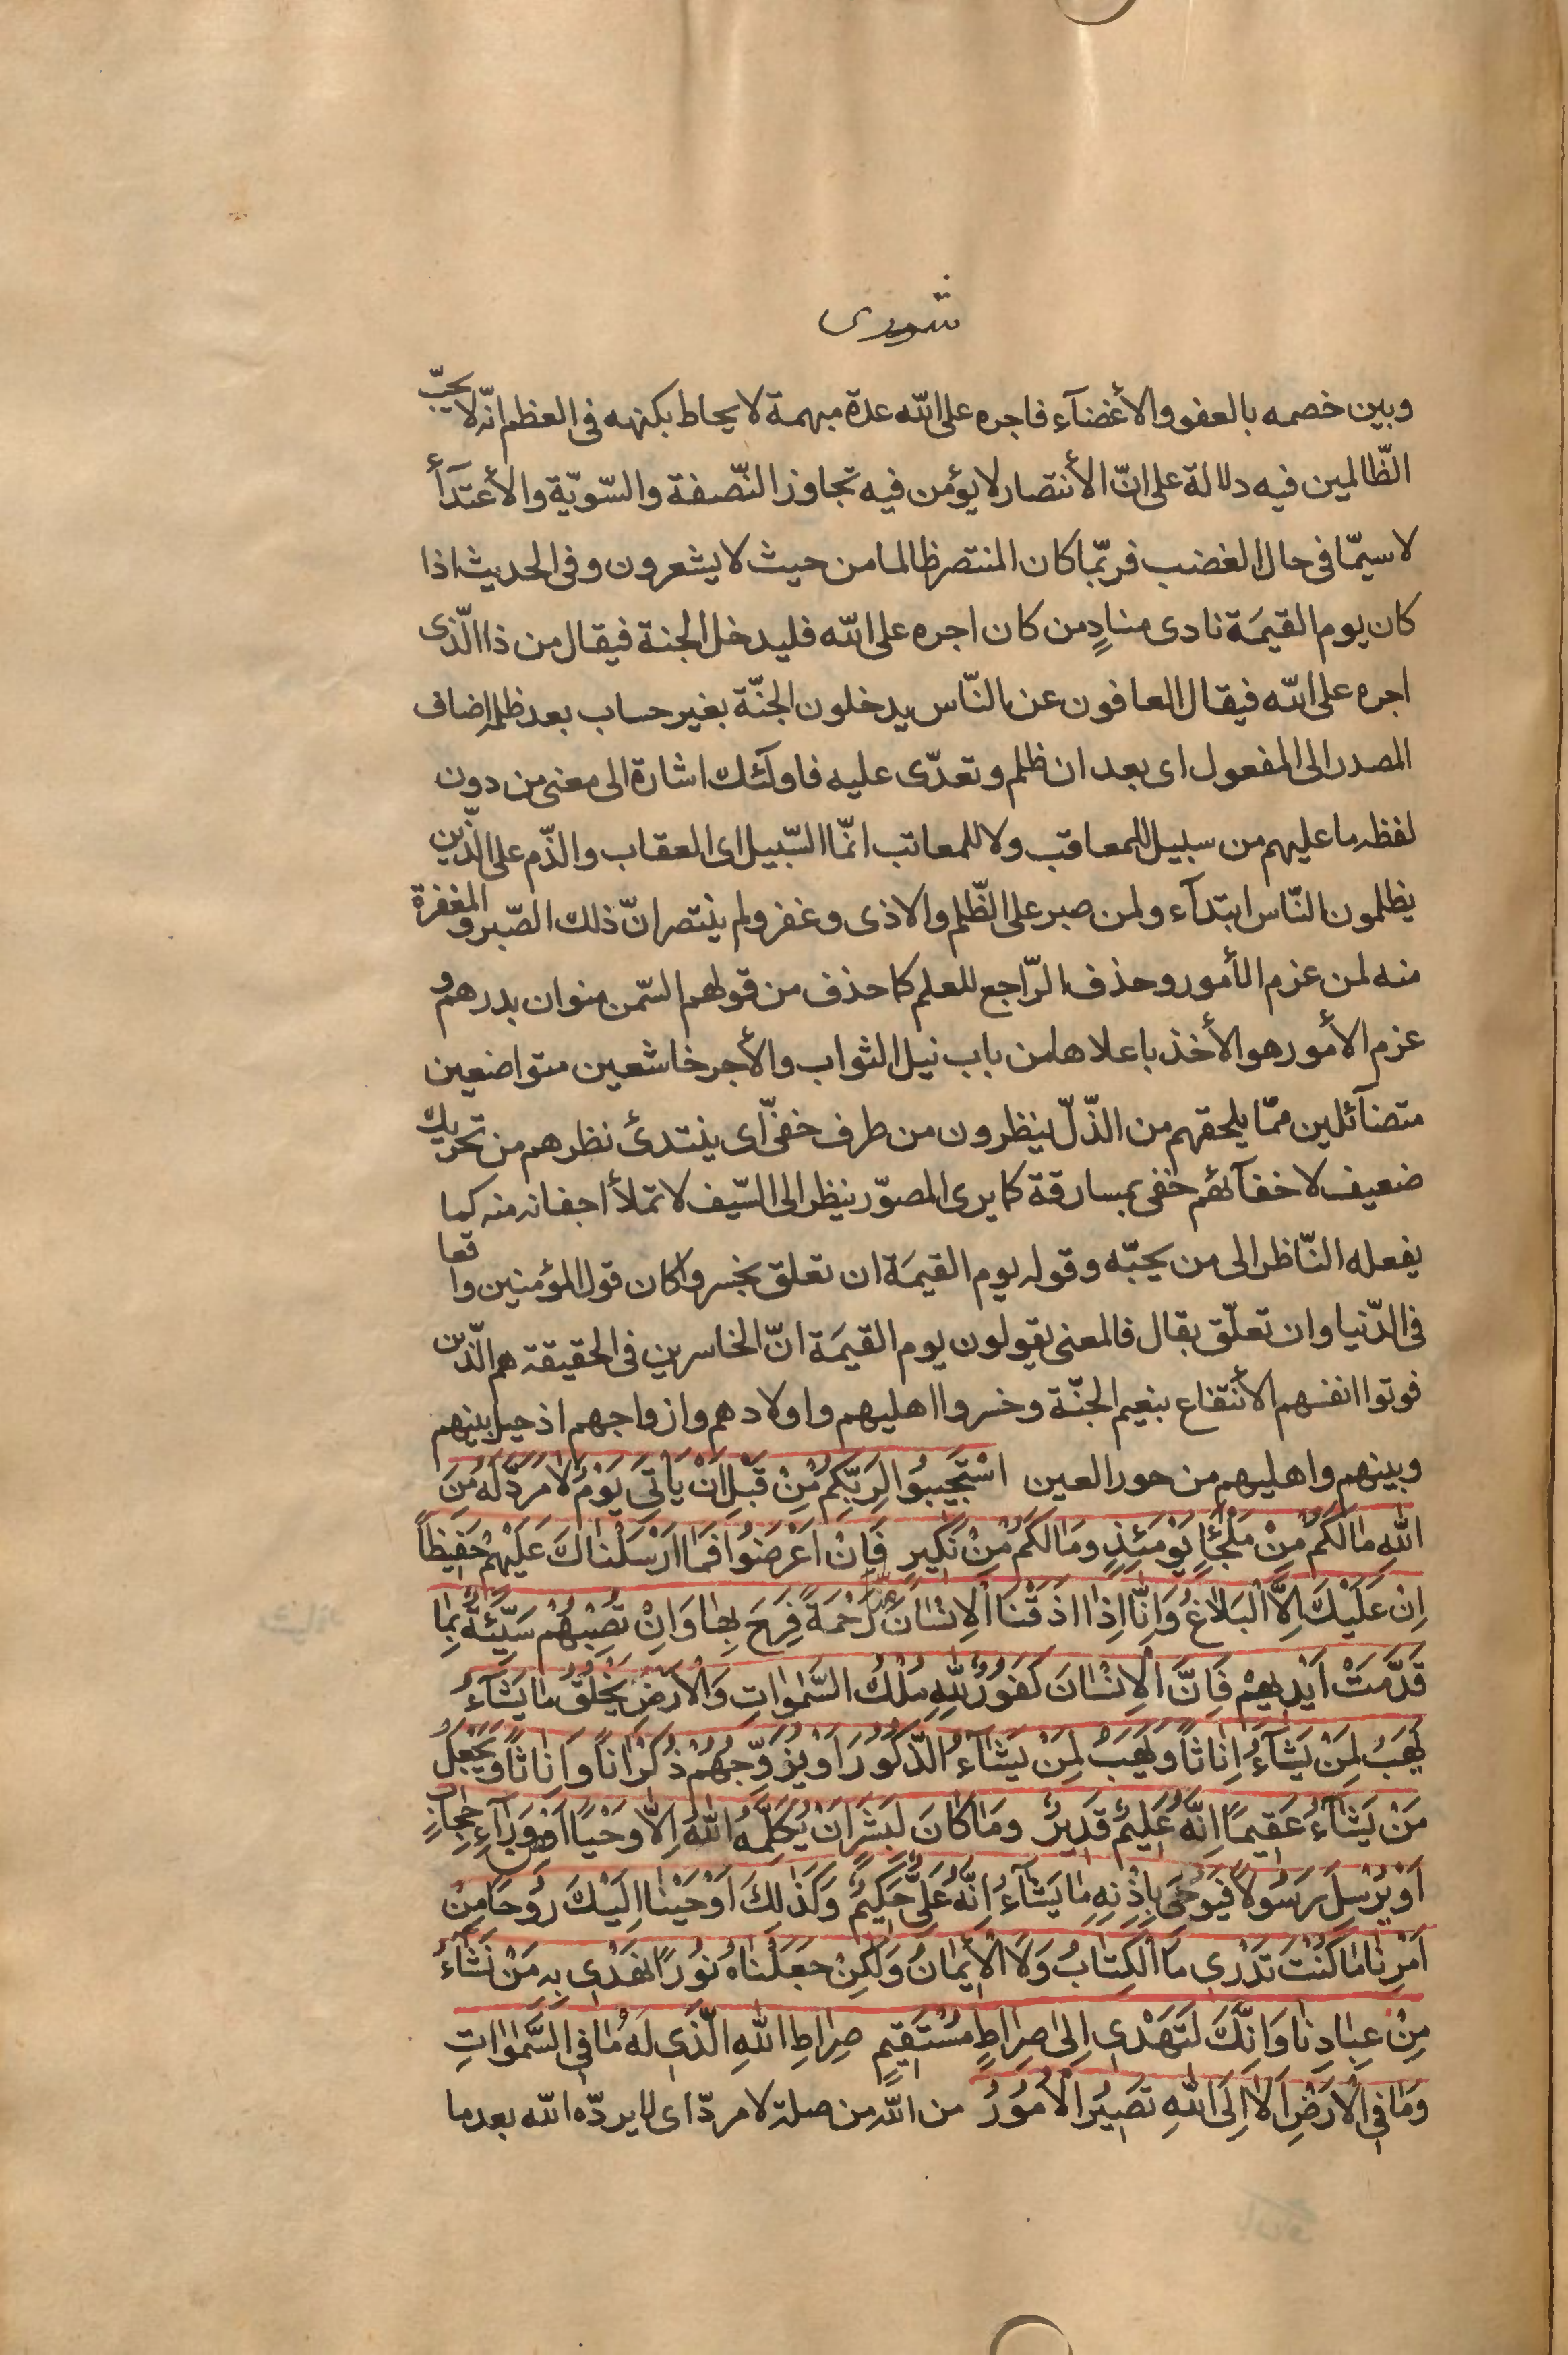 شورى
وبين خصمه بالعفو والأغضآء فاجره على الله عدة مبهمة لا يحاط بكنهه فى العظم انّه لا يحبّ
الظّالمين فيه دلالة على انّ الأنتصار لا يؤمن فيه تجاوز النّصفة والسّويّة والأعتدآأ
لا سيمّا فى حال الغضب فربّما كان المنتصر ظالما من حيث لا يشعرون وفى الحديث اذا
كان يوم القيمَة نادى منادٍ من كان اجره على الله فليدخل الجنة فيقال من ذا الّذى
اجره على الله فيقال العافون عن النّاس يدخلون الجنّة بغير حساب بعد ظلمه اضاف
المصدر الى المفعول اى بعد ان ظلم وتعدّى عليه فاولٓئك اشارة الى معنى من دون
لفظه ما عليهم من سبيل للمعاقب ولا للمعاتب انّما السّبيل اى العقاب والذّم على الّذين
يظلمون النّاس ابتدآء ولمن صبر على الظّلم والاذى وغفر ولم ينتصر انّ ذلك الصّبر والمغفرة
منه لمن عزم الأمور وحذف الرّاجع للعلم كما حذف من قولهم السّمن منوان بدرهم و
عزم الأمور هو الأخذ باعلاها من باب نيل الثواب والأجر خاشعين متواضعين
متضآئلين ممّا يلحقهم من الذّلّ ينظرون من طرف خفىّ اى ينتدئ نظرهم من تحريك
ضعيف لاخفآئهم خفى بمسارقة كما يرى المصوّر ينظر الى السّيف لا تملأ اجفانه منه كما
يفعله النّاظر الى من يحبّه وقوله يوم القيمَة ان تعلق بخسروا كان قول المؤمنين واقعا
فى الدّنيا وان تعلّق بقال فالمعنى يقولون يوم القيمَة انّ الخاسرين فى الحقيقة هم الّذين
فوتوا انفسهم الأنتفاع بنعيم الجنّة وخسروا اهليهم واولادهم وازواجهم اذ حيل بينهم
وبينهم واهليهم من حور العين اسْتَجيبُوا لِرَبِّكُمْ مِنْ قَبْلِ اَنْ يَأتِىَ يَوْمٌ لا مَرَدَّ لَهُ مِنَ
اللهِ ما لَكُمْ مِنْ مَلْجَإٍ يَوْمَئِذٍ وَما لَكُمْ مِنْ نَكيرٍ فَاِنْ اَعْرَضُوا فَما اَرْسَلْناكَ عَلَيْهِمْ حَفيظاً
اِنْ عَلَيْكَ اِلاَّ الْبَلاغُ وَاِنّا اِذا اَذَقْنَا الْاِنْسانَ مِنّا رَحْمَةً فَرِحَ بِها وَاِنْ تُصِبْهُمْ سَيِّئَةٌ بِما
قَدَّمَتْ اَيْديهِمْ فَاِنَّ الْاِنْسانَ كَفُورٌ لِلّٰهِ مُلْكُ السَّمٰواتِ وَالْاَرْضِ يَخْلُقُ ما يَشآءُ
يَهَبُ لِمَنْ يَشآءُ اِناثاً وَيَهَبُ لِمَنْ يَشآءُ الذُّكُورَ اَوْ يُزَوِّجُهُمْ ذُكْراناً وَاِناثاً وَيَجْعَلُ
مَنْ يَشآءُ عَقيماً اِنَّهُ عَليمٌ قَديرٌ وَما كانَ لِبَشَرٍ اَنْ يُكَلِّمَهُ اللهُ اِلاّ وَحْياً اَوْ مِن وَرآءِ حِجابٍ
اَوْ يُرْسِلَ رَسُولاً فَيُوحِىَ بِاِذْنِهِ ما يَشآءُ اِنَّهُ عَلِىٌّ حَكيمٌ وَكَذٰلِكَ اَوْحَيْنا اِلَيْكَ رُوحاً مِنْ
اَمْرِنا ما كُنْتَ تَدْرى مَا الْكِتابُ وَلاَ الْايمانُ وَلكِنْ جَعَلْناهُ نُوراً نَهْدى بِهِ مَنْ نَشآءُ
مِنْ عِبادِنا وَاِنَّكَ لَتَهْدى اِلى صِراطٍ مُسْتَقيمٍ صِراطِ اللهِ الَّذى لَهُ ما فِى السَّمٰواتِ
وَما فِى الْاَرْضِ اَلا اِلَى اللهِ تَصيرُ الْاُمُورُ من الله من صلة لا مردّ اى لا يردّه الله بعد ما